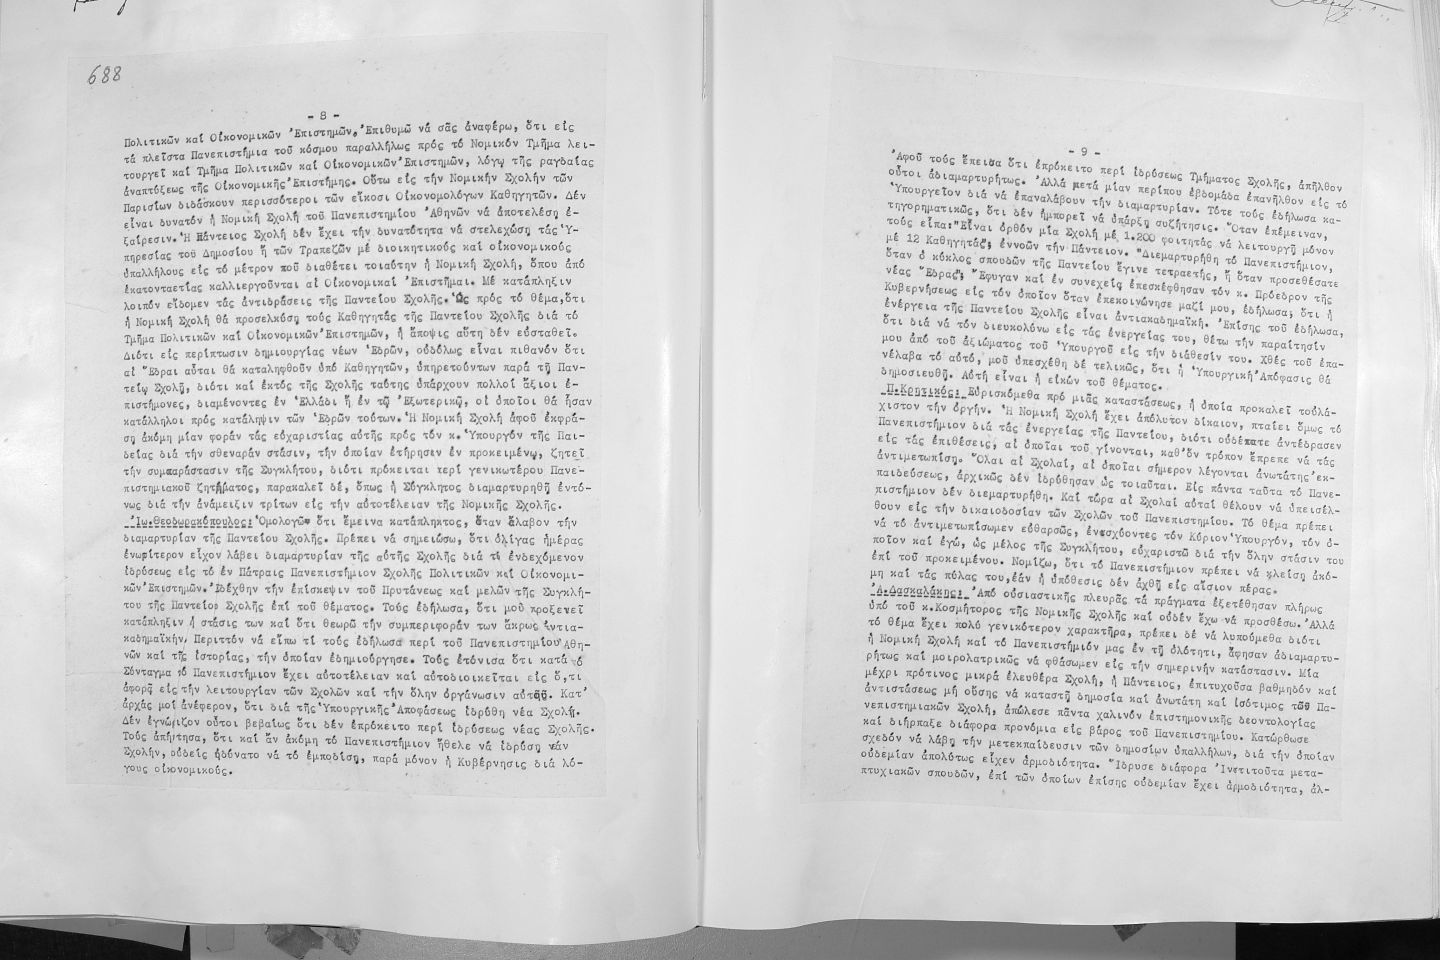 688
- 8 -
Πολιτικῶν καί Οἰκονομικῶν Ἐπιστημῶν. Ἐπιθυμῶ νά σᾶς ἀναφέρω, ὅτι εἰς
τά πλεῖστα Πανεπιστήμια τοῦ κόσμου παραλλήλως πρός τό Νομικόν Τμῆμα λει-
τουργεῖ καί Τμῆμα Πολιτικῶν καί Οἰκονομικῶν Ἐπιστημῶν, λόγῳ τῆς ραγδαίας
ἀναπτύξεως τῆς Οἰκονομικῆς Ἐπιστήμης. Οὕτω εἰς τήν Νομικήν Σχολήν τῶν
Παρισίων διδάσκουν περισσότεροι τῶν εἴκοσι Οἰκονομολόγων Καθηγητῶν. Δέν
εἶναι δυνατόν ἡ Νομική Σχολή τοῦ Πανεπιστημίου Ἀθηνῶν νά ἀποτελέσῃ ἐ-
ξαίρεσιν. Ἡ Πάντειος Σχολή δέν ἔχει τήν δυνατότητα νά στελεχώσῃ τάς Ὑ-
πηρεσίας τοῦ Δημοσίου ἤ τῶν Τραπεζῶν μέ διοικητικούς καί οἰκονομικούς
ὑπαλλήλους εἰς τό μέτρον πού διαθέτει τοιαύτην ἡ Νομική Σχολή, ὅπου ἀπό
ἑκατονταετίας καλλιεργοῦνται αἱ Οἰκονομικαί Ἐπιστῆμαι. Μέ κατάπληξιν
λοιπόν εἴδομεν τάς ἀντιδράσεις τῆς Παντείου Σχολῆς. Ὡς πρός τό θέμα, ὅτι
ἡ Νομική Σχολή θά προσελκύσῃ τούς Καθηγητάς τῆς Παντείου Σχολῆς διά τό
Τμῆμα Πολιτικῶν καί Οἰκονομικῶν Ἐπιστημῶν, ἡ ἄποψις αὕτη δέν εὐσταθεῖ.
Διότι εἰς περίπτωσιν δημιουργίας νέων Ἑδρῶν, οὐδόλως εἶναι πιθανόν ὅτι
αἱ Ἕδραι αὗται θά καταληφθοῦν ὑπό Καθηγητῶν, ὑπηρετούντων παρά τῇ Παν-
τείῳ Σχολῇ, διότι καί ἐκτός τῆς Σχολῆς ταύτης ὑπάρχουν πολλοί ἄξιοι ἐ-
πιστήμονες, διαμένοντες ἐν Ἑλλάδι ἤ ἐν τῷ Ἐξωτερικῷ, οἱ ὁποῖοι θά ἦσαν
κατάλληλοι πρός κατάληψιν τῶν Ἑδρῶν τούτων. Ἡ Νομική Σχολή ἀφοῦ ἐκφρά-
σῃ ἀκόμη μίαν φοράν τάς εὐχαριστίας αὐτῆς πρός τόν κ. Ὑπουργόν τῆς Παι-
δείας διά τήν σθεναράν στάσιν, τήν ὁποίαν ἐτήρησεν ἐν προκειμένῳ, ζητεῖ
τήν συμπαράστασιν τῆς Συγκλήτου, διότι πρόκειται περί γενικωτέρου Πανε-
πιστημιακοῦ ζητήματος, παρακαλεῖ δέ, ὅπως ἡ Σύγκλητος διαμαρτυρηθῇ ἐντό-
νως διά τήν ἀνάμειξιν τρίτων εἰς τήν αὐτοτέλειαν τῆς Νομικῆς Σχολῆς.
Ἰω. Θεοδωρακόπουλος: Ὁμολογῶ ὅτι ἔμεινα κατάπληκτος, ὅταν ἔλαβον τήν
διαμαρτυρίαν τῆς Παντείου Σχολῆς. Πρέπει νά σημειώσω, ὅτι ὀλίγας ἡμέρας
ἐνωρίτερον εἶχον λάβει διαμαρτυρίαν τῆς αὐτῆς Σχολῆς διά τό ἐνδεχόμενον
ἱδρύσεως εἰς τό ἐν Πάτραις Πανεπιστήμιον Σχολῆς Πολιτικῶν καί Οἰκονομι-
κῶν Ἐπιστημῶν. Ἐδέχθην τήν ἐπίσκεψιν τοῦ Πρυτάνεως καί μελῶν τῆς Συγκλή-
του τῆς Παντείου Σχολῆς ἐπί τοῦ θέματος. Τούς ἐδήλωσα, ὅτι μοῦ προξενεῖ
κατάπληξιν ἡ στάσις των καί ὅτι θεωρῶ τήν συμπεριφοράν των ἄκρως ἀντια-
καδημαϊκήν. Περιττόν νά εἴπω τί τούς ἐδήλωσα περί τοῦ Πανεπιστημίου Ἀθη-
νῶν καί τῆς ἱστορίας, τήν ὁποίαν ἐδημιούργησε. Τούς ἐτόνισα ὅτι κατά τό
Σύνταγμα τό Πανεπιστήμιον ἔχει αὐτοτέλειαν καί αὐτοδιοικεῖται εἰς ὅ,τι
ἀφορᾷ εἰς τήν λειτουργίαν τῶν Σχολῶν καί τήν ὅλην ὀργάνωσιν αὐτοῦ. Κατ'
ἀρχάς μοί ἀνέφερον, ὅτι διά τῆς Ὑπουργικῆς Ἀποφάσεως ἱδρύθη νέα Σχολή.
Δέν ἐγνώριζον οὗτοι βεβαίως ὅτι δέν ἐπρόκειτο περί ἱδρύσεως νέας Σχολῆς.
Τούς ἀπήντησα, ὅτι καί ἄν ἀκόμη τό Πανεπιστήμιον ἤθελε νά ἱδρύσῃ νέαν
Σχολήν, οὐδείς ἠδύνατο νά τό ἐμποδίσῃ, παρά μόνον ἡ Κυβέρνησις διά λό-
γους οἰκονομικούς.
- 9 -
Ἀφοῦ τούς ἔπεισα ὅτι ἐπρόκειτο περί ἱδρύσεως Τμήματος Σχολῆς, ἀπῆλθον
οὗτοι ἀδιαμαρτυρήτως. Ἀλλά μετά μίαν περίπου ἑβδομάδα ἐπανῆλθον εἰς τό
Ὑπουργεῖον διά νά ἐπαναλάβουν τήν διαμαρτυρίαν. Τότε τούς ἐδήλωσα κα-
τηγορηματικῶς, ὅτι δέν ἠμπορεῖ νά ὑπάρξῃ συζήτησις. Ὅταν ἐπέμειναν,
τούς εἶπα: "Εἶναι ὀρθόν μία Σχολή μέ 1.200 φοιτητάς νά λειτουργῇ μόνον
μέ 12 Καθηγητάς", ἐννοῶν τήν Πάντειον. "Διεμαρτυρήθη τό Πανεπιστήμιον,
ὅταν ὁ κύκλος σπουδῶν τῆς Παντείου ἔγινε τετραετής, ἤ ὅταν προσεθέσατε
νέας Ἕδρας"; Ἔφυγαν καί ἐν συνεχείᾳ ἐπεσκέφθησαν τόν κ. Πρόεδρον τῆς
Κυβερνήσεως εἰς τόν ὁποῖον ὅταν ἐπεκοινώνησε μαζί μου, ἐδήλωσα, ὅτι ἡ
ἐνέργεια τῆς Παντείου Σχολῆς εἶναι ἀντιακαδημαϊκή. Ἐπίσης τοῦ ἐδήλωσα,
ὅτι διά νά τόν διευκολύνω εἰς τάς ἐνεργείας του, θέτω τήν παραίτησίν
μου ἀπό τοῦ ἀξιώματος τοῦ Ὑπουργοῦ εἰς τήν διάθεσίν του. Χθές τοῦ ἐπα-
νέλαβα τό αὐτό, μοῦ ὑπεσχέθη δέ τελικῶς, ὅτι ἡ Ὑπουργική Ἀπόφασις θά
δημοσιευθῇ. Αὐτή εἶναι ἡ εἰκών τοῦ θέματος.
Π. Κρητικός: Εὑρισκόμεθα πρό μιᾶς καταστάσεως, ἡ ὁποία προκαλεῖ τοὐλά-
χιστον τήν ὀργήν. Ἡ Νομική Σχολή ἔχει ἀπόλυτον δίκαιον, πταίει ὅμως τό
Πανεπιστήμιον διά τάς ἐνεργείας τῆς Παντείου, διότι οὐδέποτε ἀντέδρασεν
εἰς τάς ἐπιθέσεις, αἱ ὁποῖαι τοῦ γίνονται, καθ' ὅν τρόπον ἔπρεπε νά τάς
ἀντιμετωπίσῃ. Ὅλαι αἱ Σχολαί, αἱ ὁποῖαι σήμερον λέγονται ἀνωτάτης ἐκ-
παιδεύσεως, ἀρχικῶς δέν ἱδρύθησαν ὡς τοιαῦται. Εἰς πάντα ταῦτα τό Πανε-
πιστήμιον δέν διεμαρτυρήθη. Καί τώρα αἱ Σχολαί αὐταί θέλουν νά ὑπεισέλ-
θουν εἰς τήν δικαιοδοσίαν τῶν Σχολῶν τοῦ Πανεπιστημίου. Τό θέμα πρέπει
νά τό ἀντιμετωπίσωμεν εὐθαρσῶς, ἐνισχύοντες τόν Κύριον Ὑπουργόν, τόν ὁ-
ποῖον καί ἐγώ, ὡς μέλος τῆς Συγκλήτου, εὐχαριστῶ διά τήν ὅλην στάσιν του
ἐπί τοῦ προκειμένου. Νομίζω, ὅτι τό Πανεπιστήμιον πρέπει νά κλείσῃ ἀκό-
μη καί τάς πύλας του, ἐάν ἡ ὑπόθεσις δέν ἀχθῇ εἰς αἴσιον πέρας.
Ἀ. Δασκαλάκης: Ἀπό οὐσιαστικῆς πλευρᾶς τά πράγματα ἐξετέθησαν πλήρως
ὑπό τοῦ κ. Κοσμήτορος τῆς Νομικῆς Σχολῆς καί οὐδέν ἔχω νά προσθέσω. Ἀλλά
τό θέμα ἔχει πολύ γενικότερον χαρακτῆρα, πρέπει δέ νά λυπούμεθα διότι
ἡ Νομική Σχολή καί τό Πανεπιστήμιόν μας ἐν τῇ ὁλότητι, ἄφησαν ἀδιαμαρτυ-
ρήτως καί μοιρολατρικῶς νά φθάσωμεν εἰς τήν σημερινήν κατάστασιν. Μία
μέχρι πρότινος μικρά ἐλευθέρα Σχολή, ἡ Πάντειος, ἐπιτυχοῦσα βαθμηδόν καί
ἀντιστάσεως μή οὔσης νά καταστῇ δημοσία καί ἀνωτάτη καί ἰσότιμος τῶν Πα-
νεπιστημιακῶν Σχολή, ἀπώλεσε πάντα χαλινόν ἐπιστημονικῆς δεοντολογίας
καί διήρπαξε διάφορα προνόμια εἰς βάρος τοῦ Πανεπιστημίου. Κατώρθωσε
σχεδόν νά λάβῃ τήν μετεκπαίδευσιν τῶν δημοσίων ὑπαλλήλων, διά τήν ὁποίαν
οὐδεμίαν ἀπολύτως εἶχεν ἁρμοδιότητα. Ἵδρυσε διάφορα Ἰνστιτοῦτα μετα-
πτυχιακῶν σπουδῶν, ἐπί τῶν ὁποίων ἐπίσης οὐδεμίαν ἔχει ἁρμοδιότητα, ἀλ-